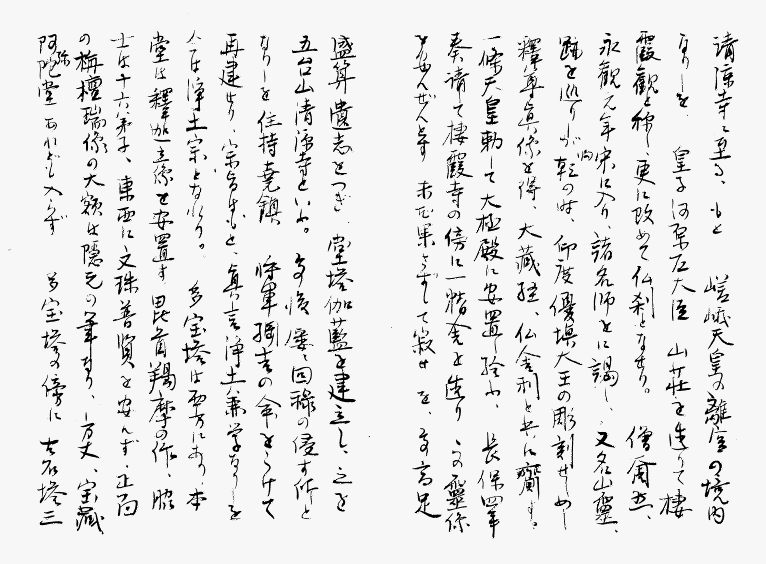 清凉寺に至る、もと 嵯峨天皇の離宮の境内
なりしを 皇子河原左大臣 山荘を造りて棲
霞観と称し更に改めて仏刹となせり。 僧奝然、
永観元年宋に入り、諸名師とに謁し、又名山霊
跡を巡りしが乾の時 印度優塡大王の彫刻せし
釋尊真像を得、大蔵経、仏舎利と共に齎す。
一條天皇勅して大極殿に安置し給ふ、 長保四年
奏請して棲霞寺の傍に一精舎を造り この霊像
を安んぜんとす 未だ果さずして寂せ を、 高足
盛算 遺志をつぎ、堂塔伽藍を建立し、之を
五台山清凉寺といふ。 回禄の侵す所と
なりしを 住持堯鎮 将軍 の命をうけて
再建せり、宗旨はもと、真言浄土兼学なりしを
今は浄土宗となれり。 多宝塔は西方にあり、本
堂は釋迦立像を安置す 毘首羯摩の作、脇
士は十六弟子、東西に文珠普賢を安んず、正面
の栴檀瑞像の大額は隠元の筆なり、 方丈、宝蔵
阿弥陀堂 あれども入らず 多宝塔の傍に 古石塔三